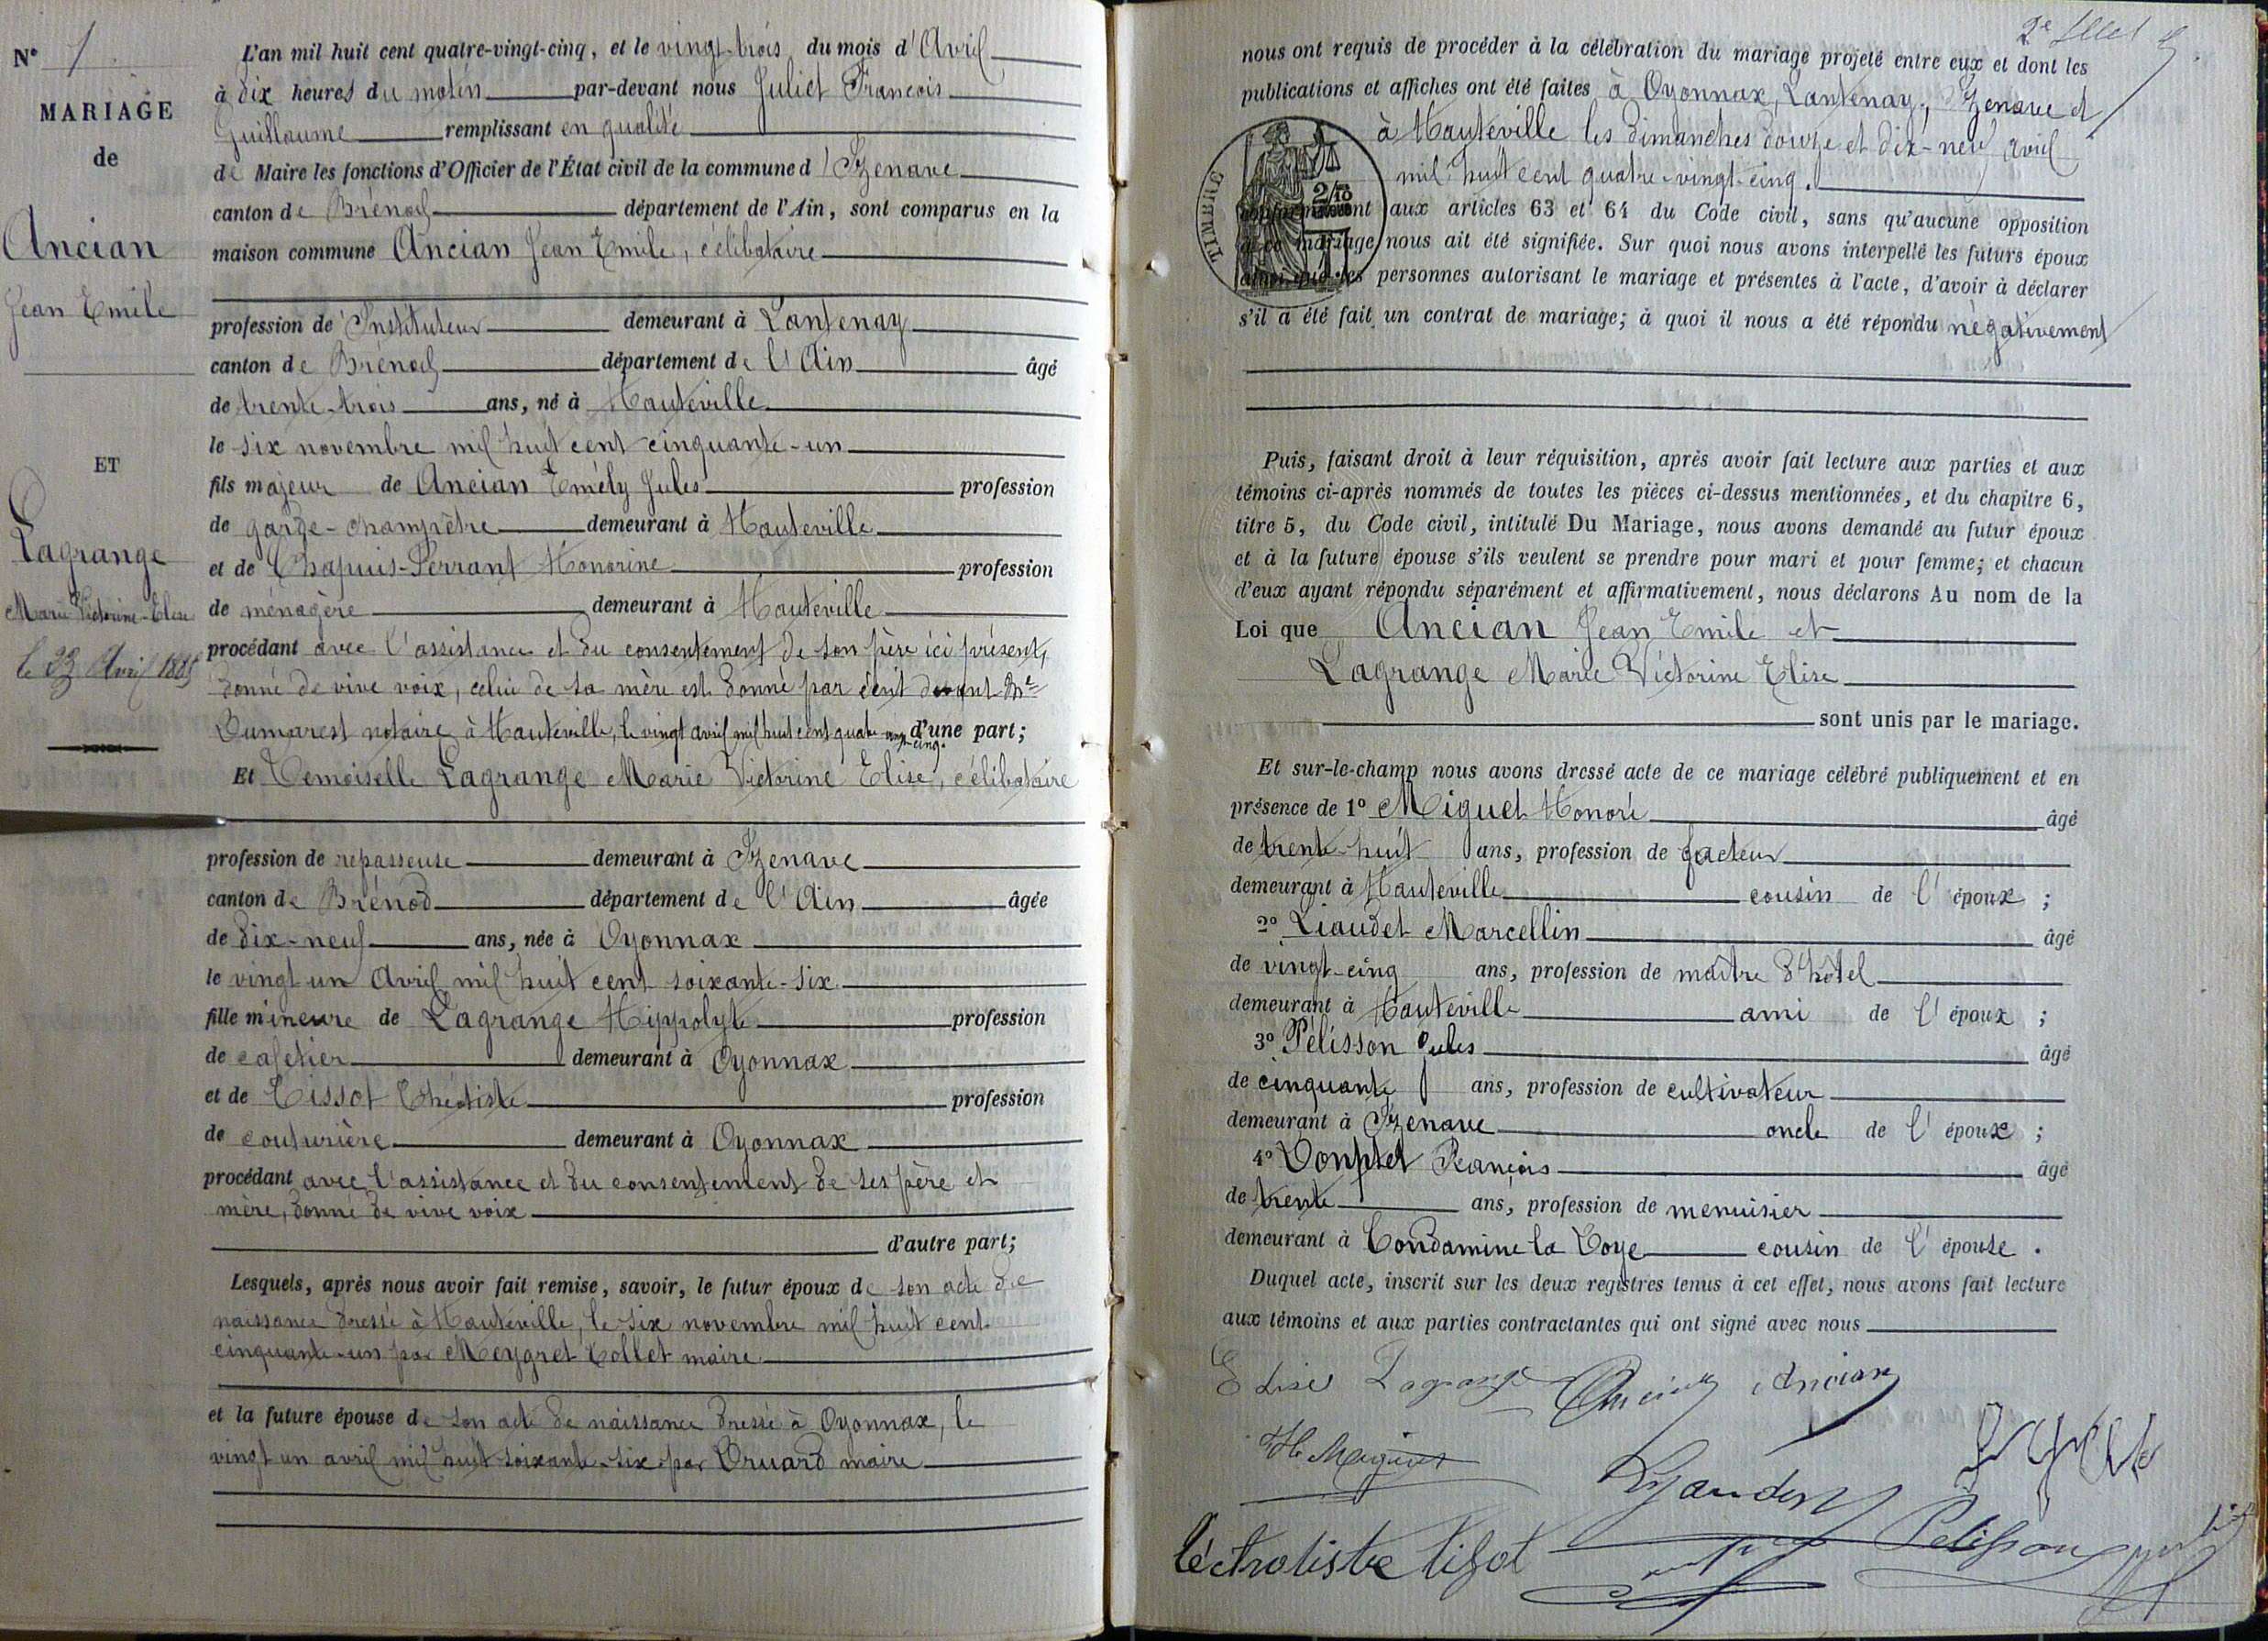 N° 1
MARIAGE
de
Ancian
Jean Emile
ET
Lagrange
Marie Victorine-Elise
le 23 Avril 1885
L'an mil huit cent quatre-vingt-cinq, et le vingt-trois du mois d'Avril
à dix heures du matin par-devant nous Juliet François
Guillaume remplissant en qualité
de Maire les fonctions d'Officier de l'État civil de la commune d'Izenave
canton de Brénod département de l'Ain, sont comparus en la
maison commune Ancian Jean Emile, célibataire
profession de Instituteur demeurant à Lantenay
canton de Brénod département de l'Ain âgé
de trente-trois ans, né à Hauteville
le six novembre mil huit cent cinquante-un
fils majeur de Ancian Emély Jules profession
de garde-champètre demeurant à Hauteville
et de Chapuis-Ferrant Honorine profession
de ménagère demeurant à Hauteville
procédant avec l'assistance et du consentement de son père ici présent,
donné de vive voix, celui de sa mère est donné par écrit devant Me
Dumarest notaire à Hauteville, le vingt avril mil huit cent quatre-vingt-cinq. d'une part;
Et Demoiselle Lagrange Marie Victorine Elise, célibataire
profession de repasseuse demeurant à Izenave
canton de Brénod département de l'Ain âgée
de dix-neuf ans, née à Oyonnax
le vingt un Avril mil huit cent soixante-six
fille mineure de Lagrange Hippolyte profession
de cafetier demeurant à Oyonnax
et de Tissot Théotiste profession
de couturière demeurant à Oyonnax
procédant avec l'assistance et du consentement de ses père et
mère, donné de vive voix
d'autre part;
Lesquels, après nous avoir fait remise, savoir, le futur époux de son acte de
naissance dressé à Hauteville, le six novembre mil huit cent
cinquante-un par Meygret Collet maire
et la future épouse de son acte de naissance dressé à Oyonnax, le
vingt un avril mil huit soixante-six par Druard maire
nous ont requis de procéder à la célébration du mariage projeté entre eux et dont les
publications et affiches ont été faites à Oyonnax, Lantenay, Izenave et
à Hauteville les dimanches douze et dix-neuf avril
mil huit cent quatre-vingt-cinq.
TIMBRE
conformément aux articles 63 et 64 du Code civil, sans qu'aucune opposition
à ce mariage nous ait été signifiée. Sur quoi nous avons interpellé les futurs époux
ainsi que les personnes autorisant le mariage et présentes à l'acte, d'avoir à déclarer
s'il a été fait un contrat de mariage; à quoi il nous a été répondu négativement
Puis, faisant droit à leur réquisition, après avoir fait lecture aux parties et aux
témoins ci-après nommés de toutes les pièces ci-dessus mentionnées, et du chapitre 6,
titre 5, du Code civil, intitulé Du Mariage, nous avons demandé au futur époux
et à la future épouse s'ils veulent se prendre pour mari et pour femme; et chacun
d'eux ayant répondu séparément et affirmativement, nous déclarons Au nom de la
Loi que Ancian Jean Emile et
Lagrange Marie Victorine Elise
sont unis par le mariage.
Et sur-le-champ nous avons dressé acte de ce mariage célébré publiquement et en
présence de 1° Miguet Honoré âgé
de trente-huit ans, profession de facteur
demeurant à Hauteville cousin de l'époux ;
2° Liaudet Marcellin âgé
de vingt-cinq ans, profession de maître d'hôtel
demeurant à Hauteville ami de l'époux ;
3° Pélisson Jules âgé
de cinquante ans, profession de cultivateur
demeurant à Izenave oncle de l'époux ;
4° François âgé
de trente ans, profession de menuisier
demeurant à Condamine la Doye cousin de l'épouse .
Duquel acte, inscrit sur les deux registres tenus à cet effet, nous avons fait lecture
aux témoins et aux parties contractantes qui ont signé avec nous
Elise Lagrange Ancian Ancian
H. Miguet